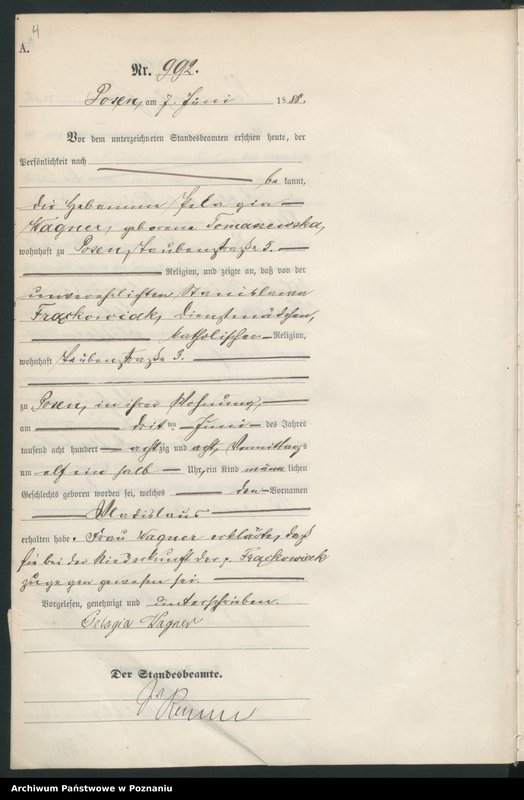 4
A.
Nr. 992.
Posen, am 7. Juni 1888.
Vor dem unterzeichneten Standesbeamten erschien heute, der
Persönlichkeit nach
be kannt,
die Hebamme Pelagia
Wagner, geborene Tomaszewska,
wohnhaft zu Posen, Taubenstraße 5.
Religion, und zeigte an, daß von der
unverehelichten Stanislawa
Frąckowiak, Dienstmädchen,
katholischer Religion,
wohnhaft Taubenstraße 3.
zu Posen, in ihrer Wohnung,
am dritten Juni des Jahres
tausend acht hundert achtzig und acht, Vormittags
um elf ein halb Uhr, ein Kind männlichen
Geschlechts geboren worden sei, welches den Vornamen
Wladislaus
erhalten habe. Frau Wagner erklärte, daß
sie bei der Niederkunft der p. Frąckowiak
zugegen gewesen sei.
Vorgelesen, genehmigt und unterschrieben.
Pelagia Wagner
Der Standesbeamte.
Archiwum Państwowe w Poznaniu